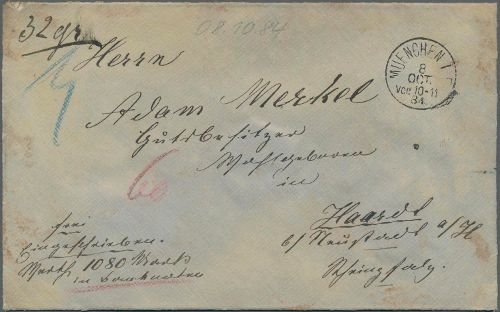 32 gr
08.10.84
Herrn
MUENCHEN I
8
OCT.
Vor. 10-11
84
Adam Merkel
Gutsbesitzer
Wohlgeboren
in
Haardt
b/ Neustadt a/H
Rheinpfalz.
frei
Eingeschrieben.
Werth 1080 Mark
in Banknoten